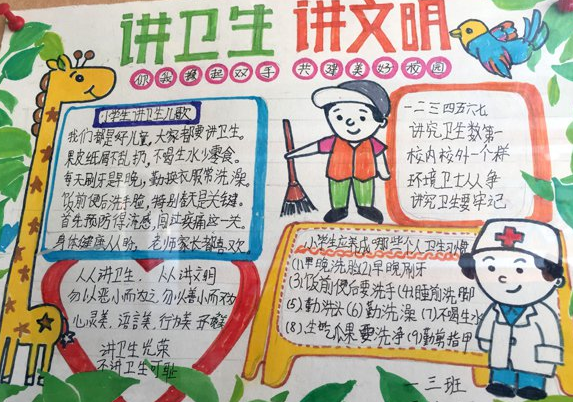 讲卫生 讲文明
你我携起双手 共建美好校园
小学生讲卫生儿歌
我们都是好儿童,大家都要讲卫生。
果皮纸屑不乱扔,不喝生水少零食。
每天刷牙是早晚,勤换衣服常洗澡。
饭前便后洗手脸,特别春天是关键。
首先预防得流感,闯过疾病这一关。
身体健康人人盼,老师家长都喜欢。
一二三四五六七
讲究卫生数第一
校内校外一个样
环境卫士人人争
讲究卫生要牢记
人人讲卫生,人人讲文明
勿以恶小而为之,勿以善小而不为
心灵美,语言美,行为美,
讲卫生光荣
不讲卫生可耻
小学生应养成哪些个人卫生习惯
(1)早晚洗脸(2)早晚刷牙
(3)饭前便后要洗手(4)睡前洗脚
(5)勤洗头(6)勤洗澡(7)不喝生水
(8)生吃瓜果要洗净(9)勤剪指甲
一三班